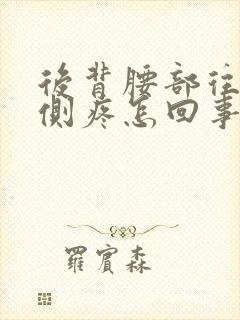 後背腰部往
側疼怎回事
羅賓森